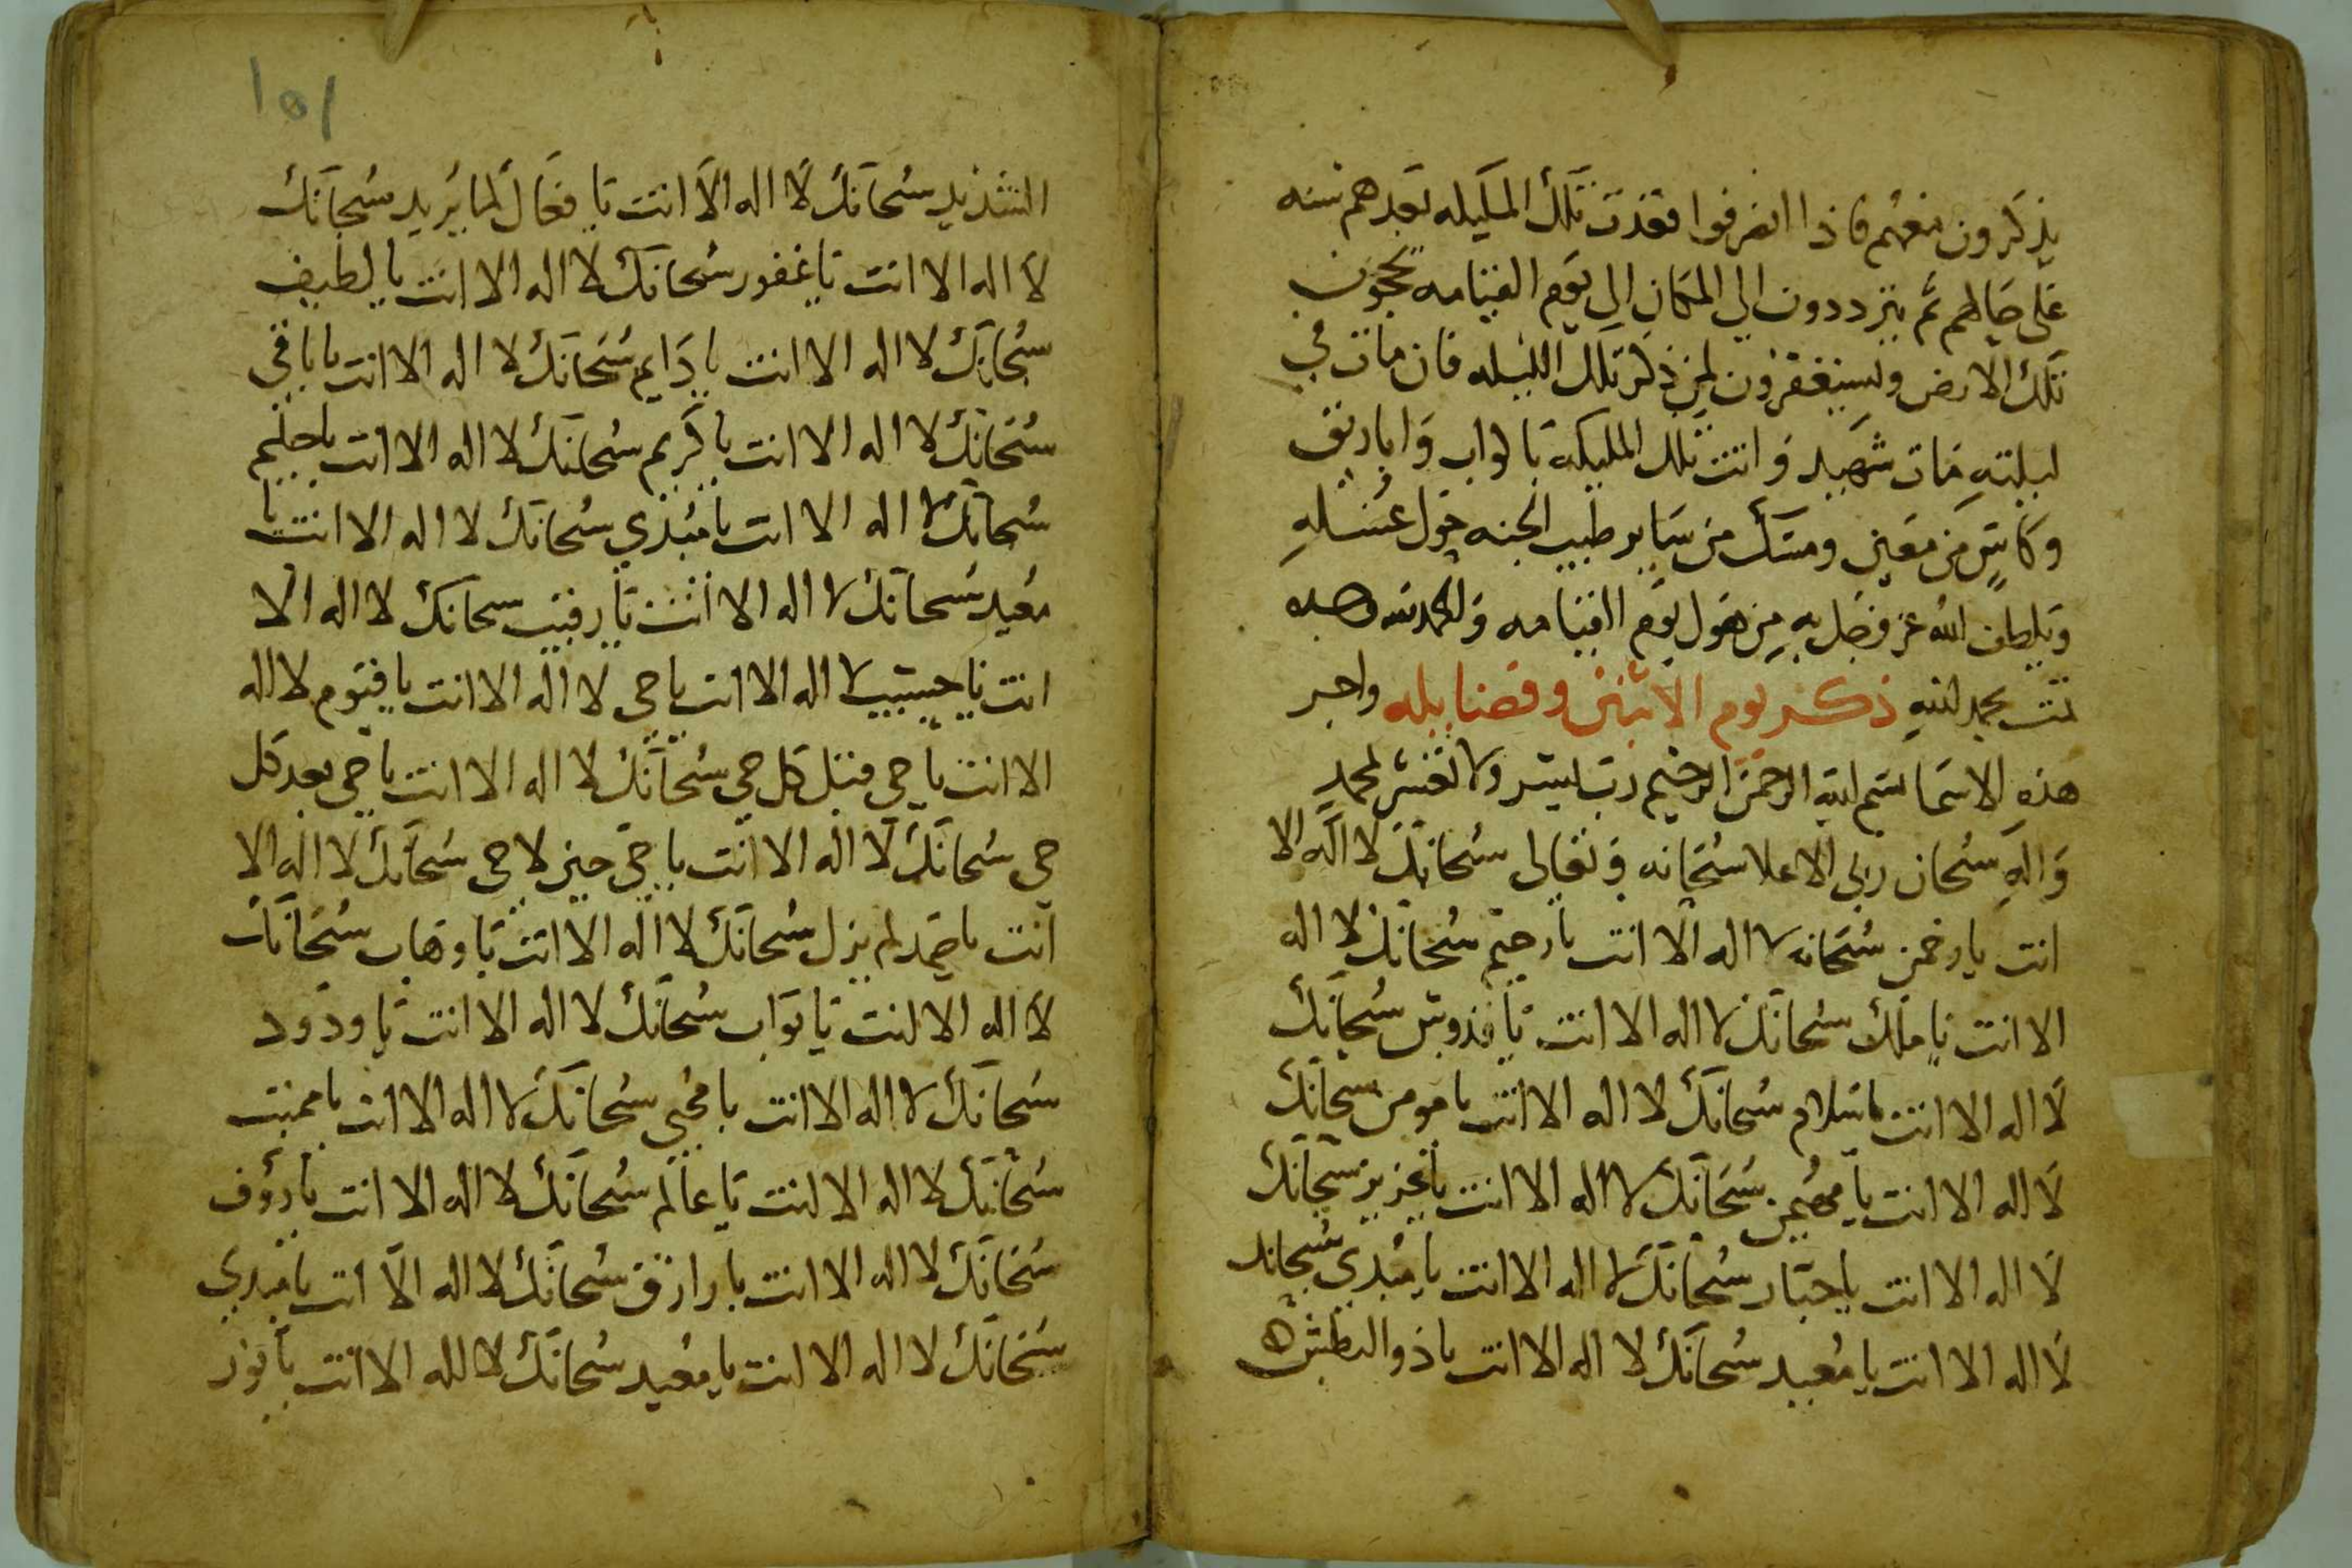 يذكرون معهم فاذا انصرفوا فقدت تلك المليكه بعدهم سنه
على حالهم ثم يترددون الى المكان الى يوم القيامه يحجون
تلك الارض ويستغفرون لمن ذكر تلك الليله فان مات في
ليلته مات شهيد واتت تلك المليكه باكواب واباريق
وكاس من معين ومسك من ساير طيب الجنه حول غسله
ويلطف الله عز وجل به من هول يوم القيامه والحمد لله وحده
تمت بحمد الله ذكر يوم الاثنين وفضايله واجر
هذه الاسما بسم الله الرحمن الرحيم رب يسر ولا تعسر بمحمد
واله سبحان ربي الاعلا سبحانه وتعالى سبحانك لا اله الا
انت يا رحمن سبحانه لا اله الا انت يا رحيم سبحانك لا اله
الا انت يا ملك سبحانك لا اله الا انت يا قدوس سبحانك
لا اله الا انت يا سلام سبحانك لا اله الا انت يا مومن سبحانك
لا اله الا انت يا مهيمن سبحانك لا اله الا انت يا عزيز سبحانك
لا اله الا انت يا جبار سبحانك لا اله الا انت يا مبدي سبحانك
لا اله الا انت يا معيد سبحانك لا اله الا انت يا ذو البطش
١٥١
الشديد سبحانك لا اله الا انت يا فعال لما يريد سبحانك
لا اله الا انت يا غفور سبحانك لا اله الا انت يا لطيف
سبحانك لا اله الا انت يا دايم سبحانك لا اله الا انت يا باقي
سبحانك لا اله الا انت يا كريم سبحانك لا اله الا انت يا حليم
سبحانك لا اله الا انت يا مبدي سبحانك لا اله الا انت يا
معيد سبحانك لا اله الا انت يا رقيب سبحانك لا اله الا
انت يا حسيب لا اله الا انت يا حي لا اله الا انت يا قيوم لا اله
الا انت يا حي قبل كل حي سبحانك لا اله الا انت يا حي بعد كل
حي سبحانك لا اله الا انت يا حي حين لا حي سبحانك لا اله الا
انت يا صمد لم يزل سبحانك لا اله الا انت يا وهاب سبحانك
لا اله الا انت يا تواب سبحانك لا اله الا انت يا ودود
سبحانك لا اله الا انت يا محيي سبحانك لا اله الا انت يا مميت
سبحانك لا اله الا انت يا عالم سبحانك لا اله الا انت يا رؤف
سبحانك لا اله الا انت يا رازق سبحانك لا اله الا انت يا مبدي
سبحانك لا اله الا انت يا معيد سبحانك لا اله الا انت يا نور